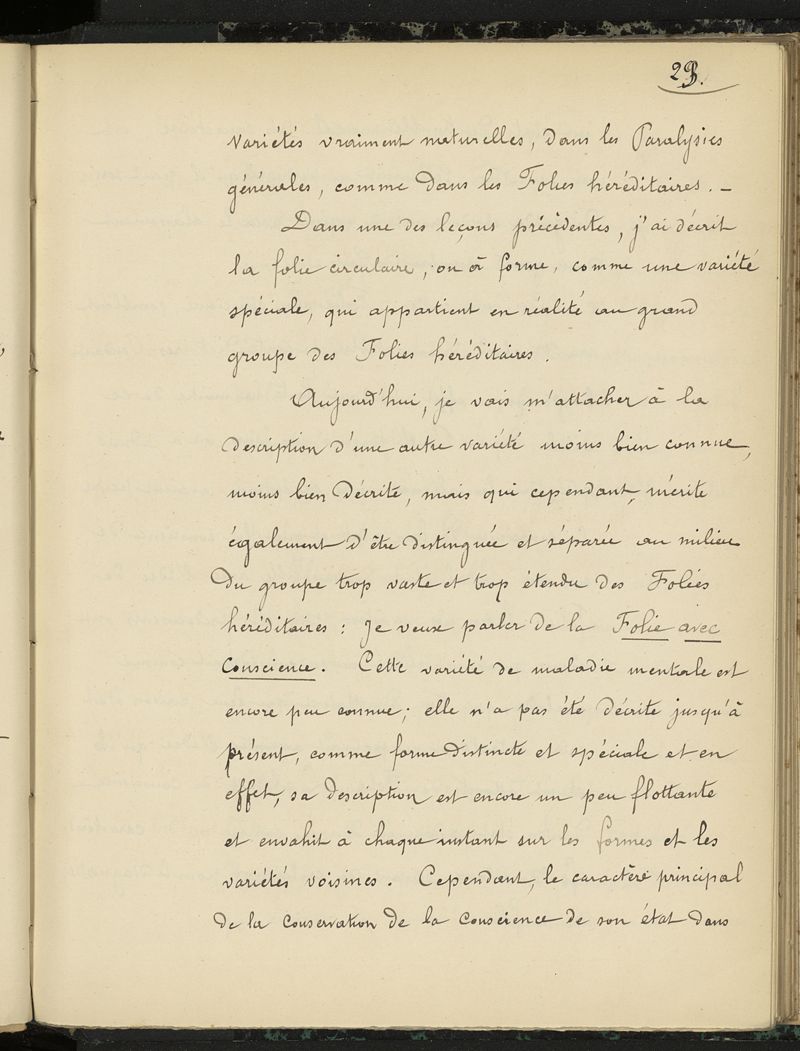 23.
variétés vraiment naturelles, dans les Paralysies
générales, comme dans les Folies héréditaires. –
Dans une des leçons précédentes, j'ai décrit
la folie circulaire, ou à forme, comme une variété
spéciale, qui appartient en réalité au grand
groupe des Folies héréditaires.
Aujourd'hui, je vais m'attacher à la
description d'une autre variété moins bien connue,
moins bien décrite, mais qui cependant, mérite
également d'être distinguée et séparée au milieu
du groupe trop vaste et trop étendu des Folies
héréditaires : Je veux parler de la Folie avec
Conscience. Cette variété de maladie mentale est
encore peu connue; elle n'a pas été décrite jusqu'à
présent, comme forme distincte et spéciale et en
effet, sa description est encore un peu flottante
et envahit à chaque instant sur les formes et les
variétés voisines. Cependant, le caractère principal
de la conservation de la conscience de son état dans